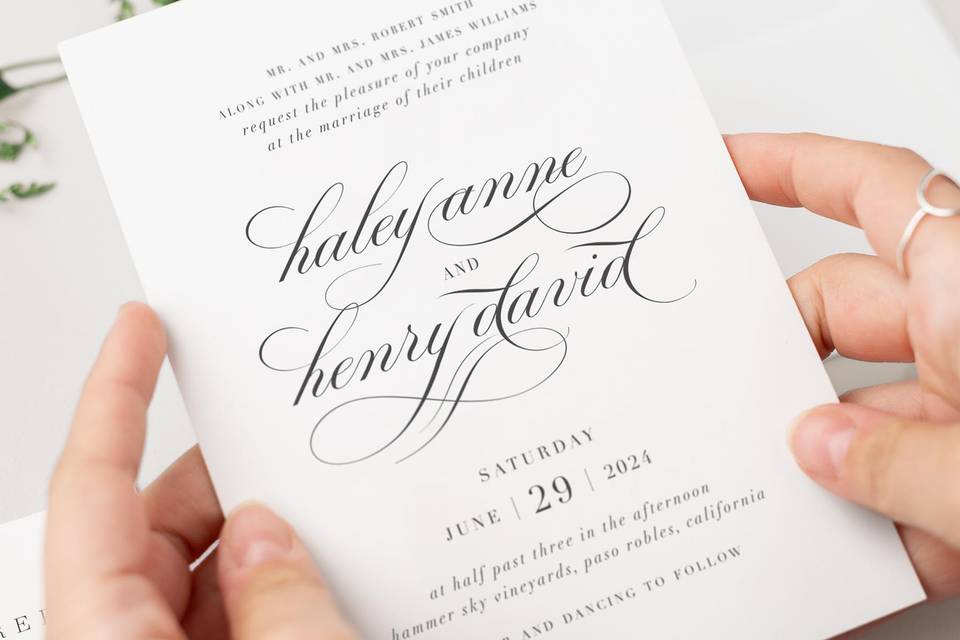 MR. AND MRS. ROBERT SMITH
ALONG WITH MR. AND MRS. JAMES WILLIAMS
request the pleasure of your company
at the marriage of their children
haley anne
AND
henry david
SATURDAY
JUNE | 29 | 2024
at half past three in the afternoon
hammer sky vineyards, paso robles, california
AND DANCING TO FOLLOW